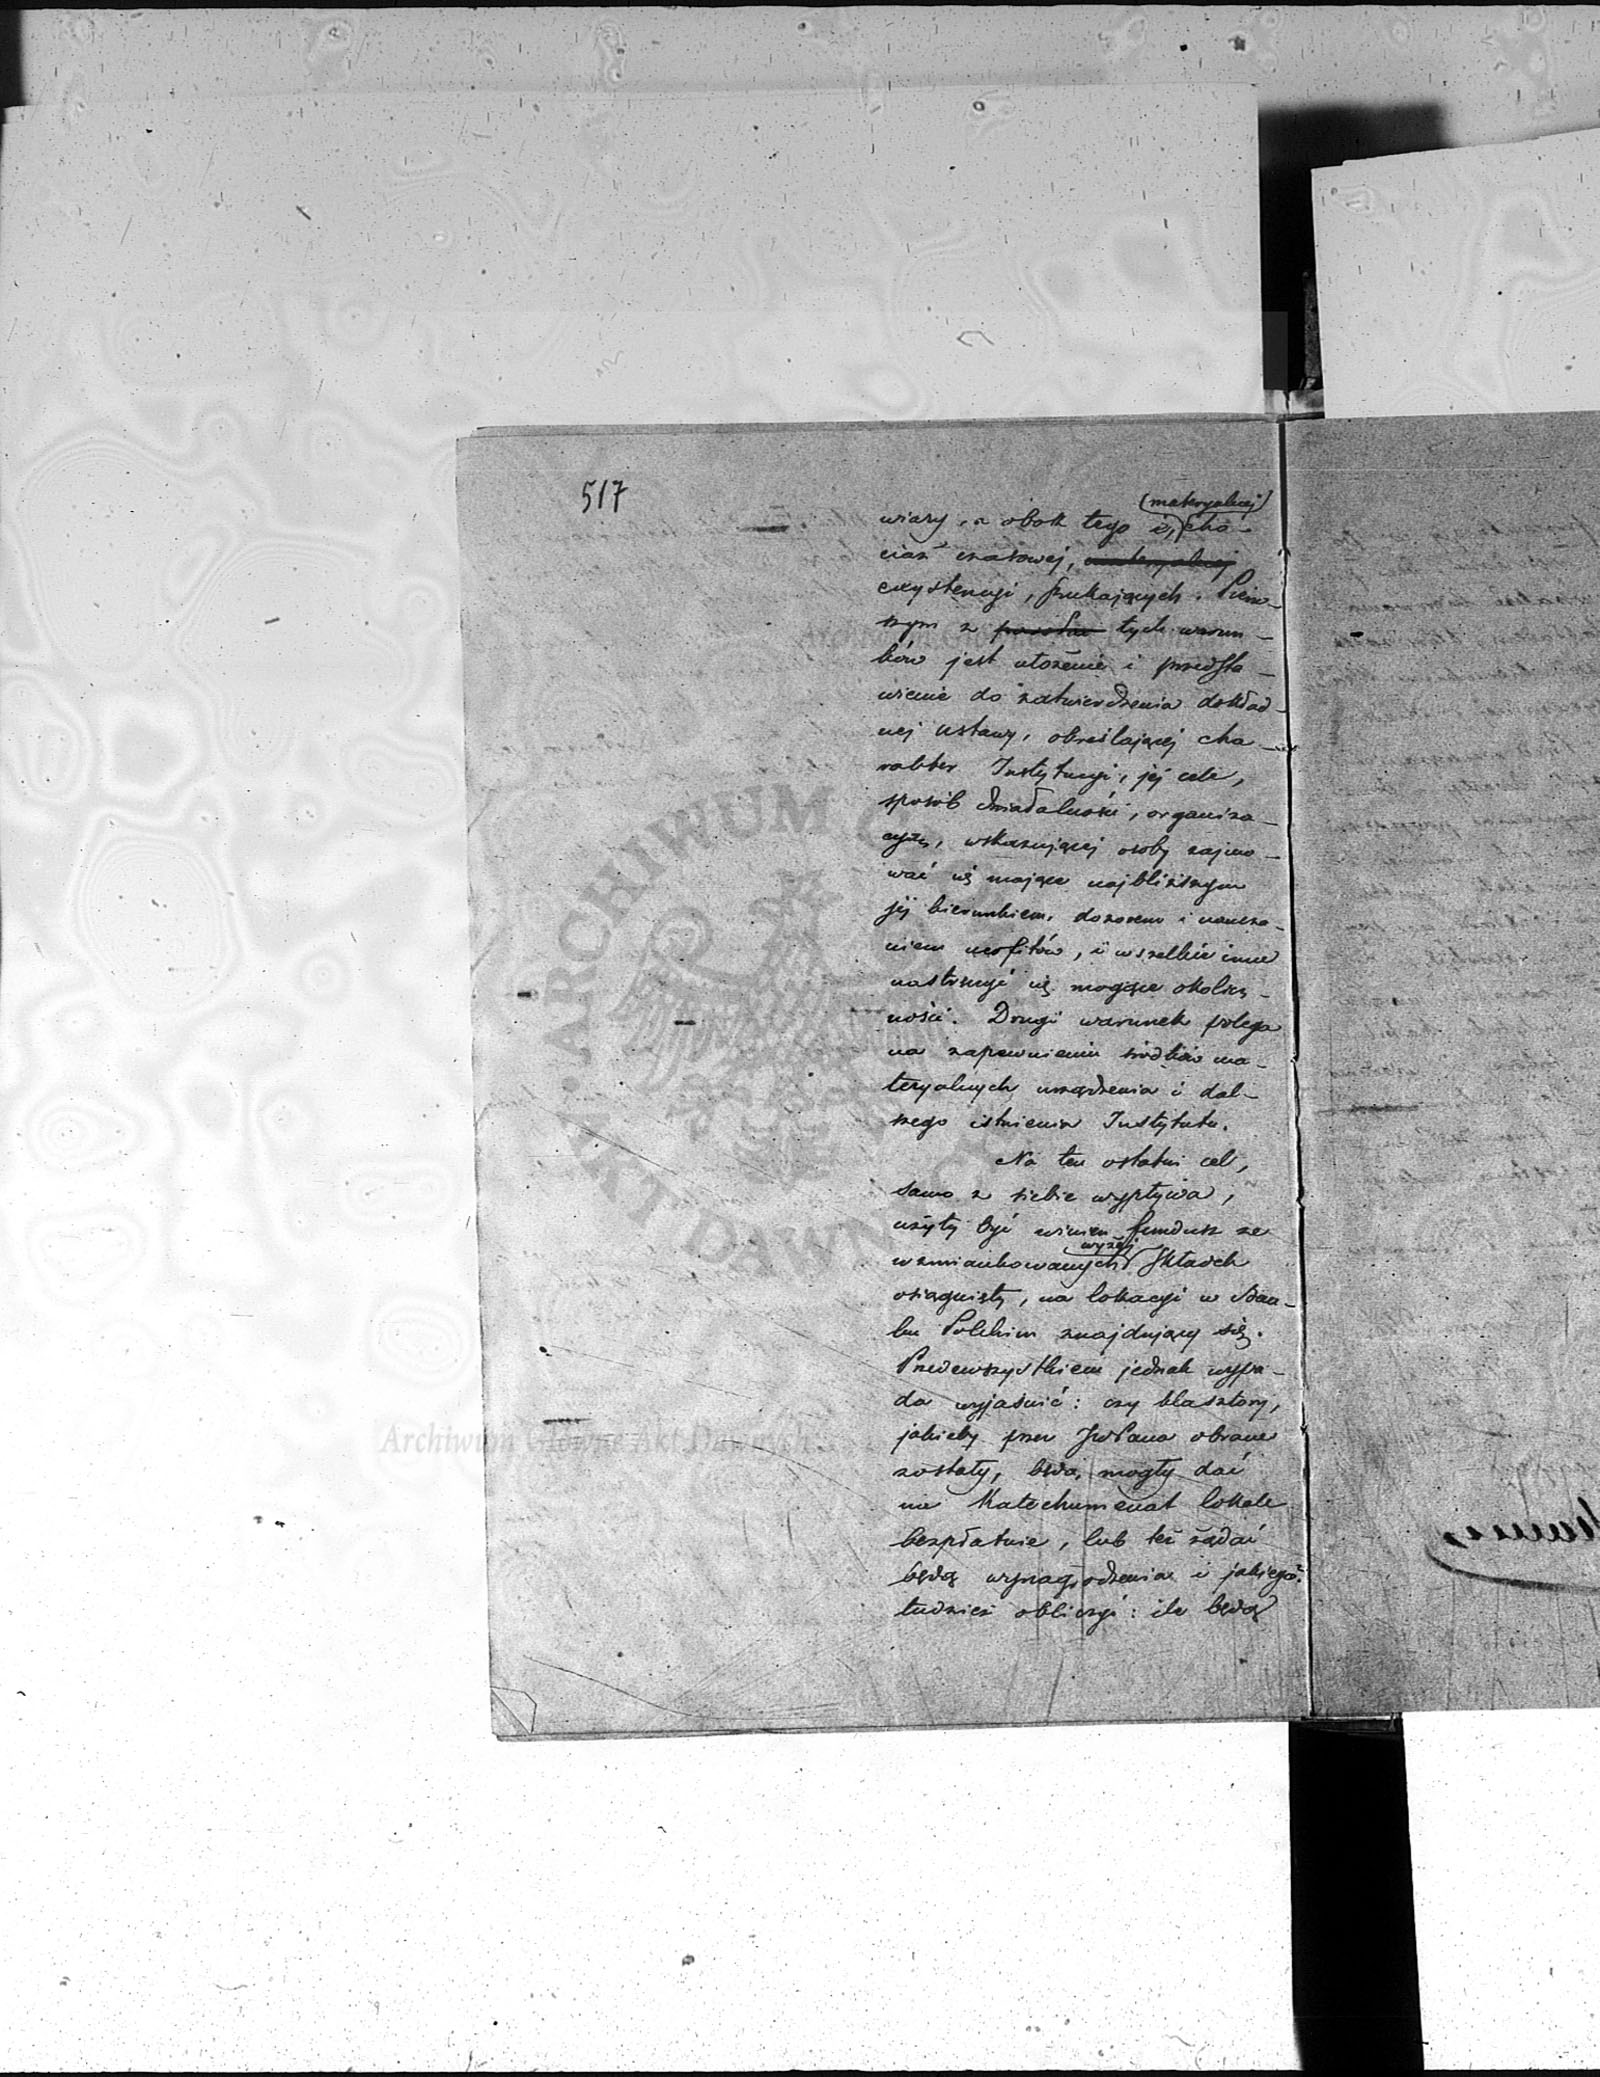 517
(materyalnej)
wiary, a obok tego i, cho-
ciaż czasowej, materyalnej
exystencyi, szukających. Pierw-
szym z tych warun-
ków jest ułożenie i przedsta-
wienie do zatwierdzenia dokład-
nej ustawy, określającej cha-
rakter Instytucyi, jej cele,
sposób działalności, organiza-
cyę, wskazującej osoby zajmo-
wać się mające najbliższym
jej kierunkiem, dozorem i naucza-
niem neofitów, i wszelkie inne
nastręczyć się mogące okolicz-
ności. Drugi warunek polega
na zapewnieniu środków ma-
teryalnych urządzenia i dal-
szego istnienia Instytutu.
Na ten ostatni cel,
samo z siebie wypływa,
użyty być winien fundusz ze
wyżej
wzmiankowanych składek
osiągnięty, na lokacyi w Ban-
ku Polskim znajdujący się.
Przedewszystkiem jednak wypa-
da wyjaśnić: czy klasztory,
jakieby przez JWPana obrane
zostały, będą mogły dać
na Katechumenat lokale
bezpłatnie, lub też żądać
będą wynagrodzenia i jakiego?
tudzież obliczyć: ile będą
ARCHIWUM GŁÓWNE AKT DAWNYCH
Archiwum Główne Akt Dawnych